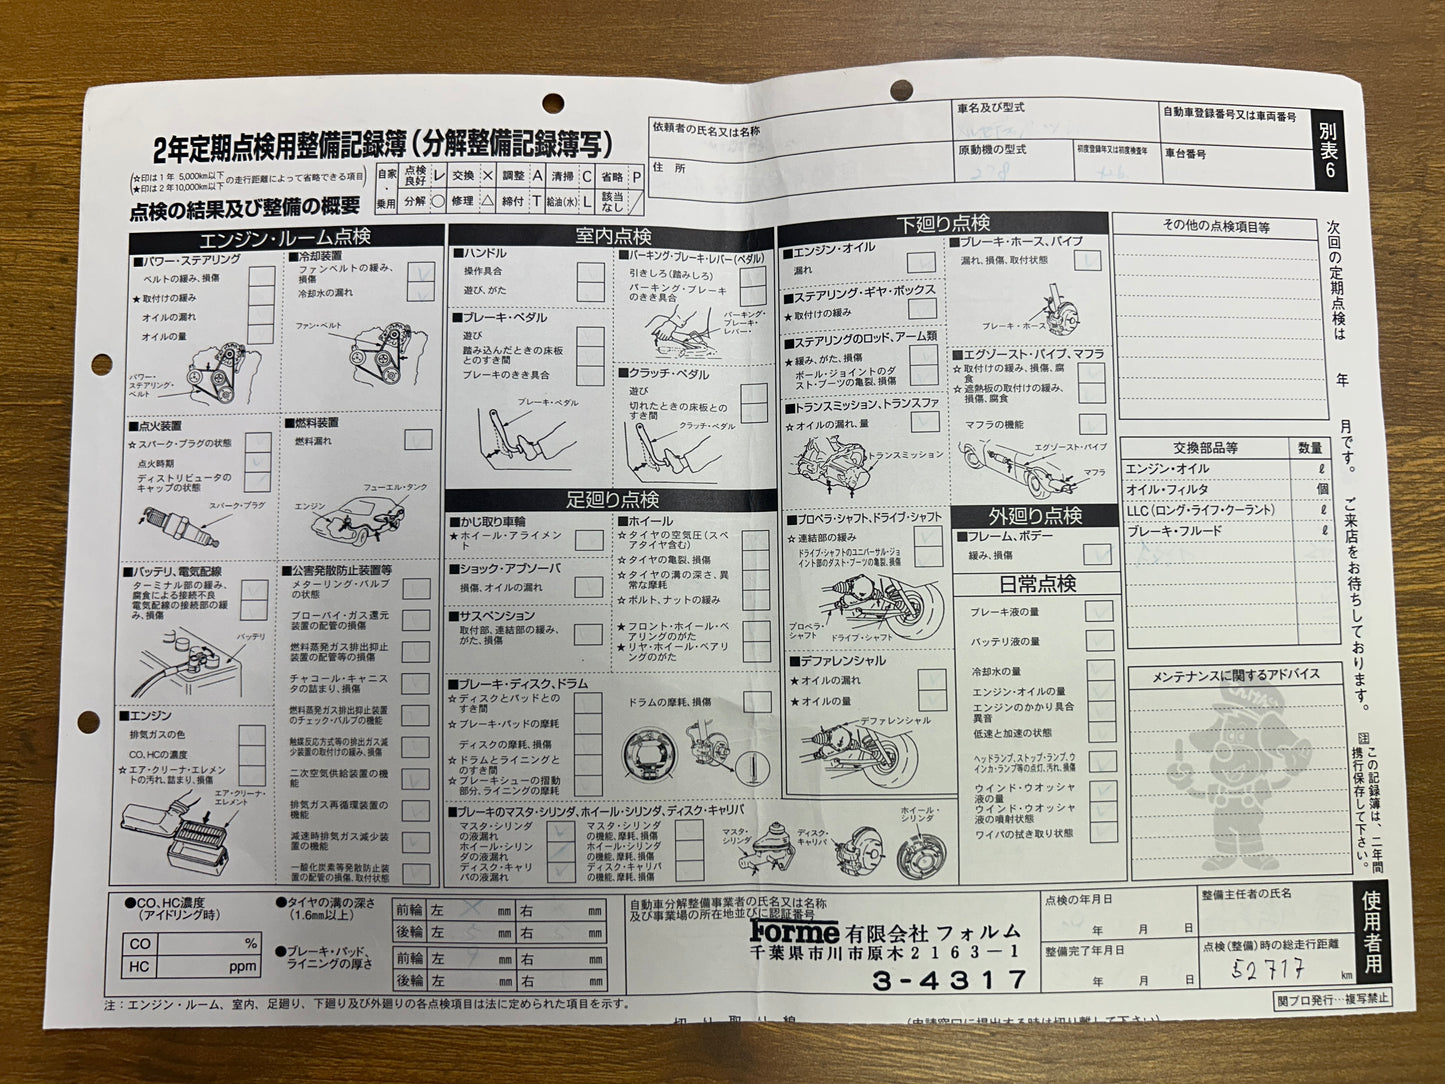 2年定期点検用整備記録簿(分解整備記録簿写)
☆印は1年 5,000km以下
★印は2年10,000km以下
の走行距離によって省略できる項目
点検の結果及び整備の概要
自家・乗用
点検良好 レ 交換 × 調整 A 清掃 C 省略 P
分解 ○ 修理 △ 締付 T 給油(水) L 該当なし /
依頼者の氏名又は名称
住所
車名及び型式
原動機の型式
初度登録年又は初度検査年
自動車登録番号又は車両番号
車台番号
別表6
エンジン・ルーム点検
■パワー・ステアリング
ベルトの緩み、損傷
★取付けの緩み
オイルの漏れ
オイルの量
パワー・ステアリング・ベルト
■冷却装置
ファンベルトの緩み、損傷
冷却水の漏れ
ファン・ベルト
■点火装置
☆スパーク・プラグの状態
点火時期
ディストリビュータのキャップの状態
スパーク・プラグ
■燃料装置
燃料漏れ
フューエル・タンク
エンジン
■バッテリ、電気配線
ターミナル部の緩み、腐食による接続不良
電気配線の接続部の緩み、損傷
バッテリ
■エンジン
排気ガスの色
CO、HCの濃度
☆エア・クリーナ・エレメントの汚れ、詰まり、損傷
エア・クリーナ・エレメント
■公害発散防止装置等
メターリング・バルブの状態
ブローバイ・ガス還元装置の配管の損傷
燃料蒸発ガス排出抑止装置の配管等の損傷
チャコール・キャニスタの詰まり、損傷
燃料蒸発ガス排出抑止装置のチェック・バルブの機能
触媒反応方式等の排出ガス減少装置の取付けの緩み、損傷
二次空気供給装置の機能
排気ガス再循環装置の機能
減速時排気ガス減少装置の機能
一酸化炭素等発散防止装置の配管の損傷、取付状態
室内点検
■ハンドル
操作具合
遊び、がた
■ブレーキ・ペダル
遊び
踏み込んだときの床板とのすき間
ブレーキのきき具合
ブレーキ・ペダル
■パーキング・ブレーキ・レバー(ペダル)
引きしろ(踏みしろ)
パーキング・ブレーキのきき具合
パーキング・ブレーキ・レバー・
■クラッチ・ペダル
遊び
切れたときの床板とのすき間
クラッチ・ペダル
足廻り点検
■かじ取り車輪
★ホイール・アライメント
■ショック・アブソーバ
損傷、オイルの漏れ
■サスペンション
取付部、連結部の緩み、がた、損傷
■ホイール
☆タイヤの空気圧(スペアタイヤ含む)
☆タイヤの亀裂、損傷
☆タイヤの溝の深さ、異常な摩耗
☆ボルト、ナットの緩み
★フロント・ホイール・ベアリングのがた
★リヤ・ホイール・ベアリングのがた
■ブレーキ・ディスク、ドラム
☆ディスクとパッドとのすき間
☆ブレーキ・パッドの摩耗
ディスクの摩耗、損傷
☆ドラムとライニングとのすき間
☆ブレーキシューの摺動部分、ライニングの摩耗
ドラムの摩耗、損傷
■ブレーキのマスタ・シリンダ、ホイール・シリンダ、ディスク・キャリパ
マスタ・シリンダの液漏れ
ホイール・シリンダの液漏れ
ディスク・キャリパの液漏れ
マスタ・シリンダの機能、摩耗、損傷
ホイール・シリンダの機能、摩耗、損傷
ディスク・キャリパの機能、摩耗、損傷
マスタ・シリンダ
ディスク・キャリパ
ホイール・シリンダ
下廻り点検
■エンジン・オイル
漏れ
■ステアリング・ギヤ・ボックス
★取付けの緩み
■ステアリングのロッド、アーム類
★緩み、がた、損傷
ボール・ジョイントのダスト・ブーツの亀裂、損傷
■トランスミッション、トランスファ
☆オイルの漏れ、量
トランスミッション
■プロペラ・シャフト、ドライブ・シャフト
☆連結部の緩み
ドライブ・シャフトのユニバーサル・ジョイント部のダスト・ブーツの亀裂、損傷
プロペラ・シャフト
ドライブ・シャフト
■デファレンシャル
★オイルの漏れ
★オイルの量
デファレンシャル
■ブレーキ・ホース、パイプ
漏れ、損傷、取付状態
ブレーキ・ホース
■エグゾースト・パイプ、マフラ
☆取付けの緩み、損傷、腐食
☆遮熱板の取付けの緩み、損傷、腐食
マフラの機能
エグゾースト・パイプ
マフラ
外廻り点検
■フレーム、ボデー
緩み、損傷
日常点検
ブレーキ液の量
バッテリ液の量
冷却水の量
エンジン・オイルの量
エンジンのかかり具合異音
低速と加速の状態
ヘッドランプ、ストップ・ランプ、ウインカ・ランプ等の点灯、汚れ、損傷
ウインド・ウオッシャ液の量
ウインド・ウオッシャ液の噴射状態
ワイパの拭き取り状態
その他の点検項目等
交換部品等 数量
エンジン・オイル ℓ
オイル・フィルタ 個
LLC(ロング・ライフ・クーラント) ℓ
ブレーキ・フルード ℓ
メンテナンスに関するアドバイス
次回の定期点検は 年 月です。ご来店をお待ちしております。
注 この記録簿は、二年間携行保存して下さい。
使用者用
●CO、HC濃度(アイドリング時)
CO %
HC ppm
●タイヤの溝の深さ(1.6mm以上)
前輪 左 mm 右 mm
後輪 左 5 mm 右 5 mm
●ブレーキ・パッド、ライニングの厚さ
前輪 左 9 mm 右 mm
後輪 左 mm 右 mm
自動車分解整備事業者の氏名又は名称及び事業場の所在地並びに認証番号
Forme 有限会社 フォルム
千葉県市川市原木2163-1
3-4317
点検の年月日
年 月 日
整備完了年月日
年 月 日
整備主任者の氏名
点検(整備)時の総走行距離
52717 km
注:エンジン・ルーム、室内、足廻り、下廻り及び外廻りの各点検項目は法に定められた項目を示す。
関プロ発行…複写禁止
切り取り線
(申請窓口に提出する時は切り離して下さい)